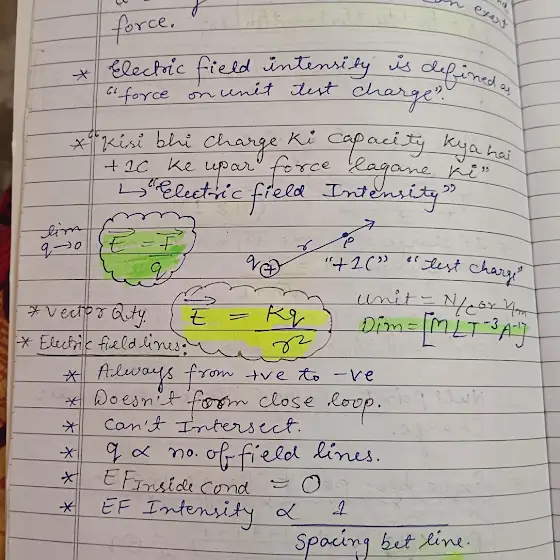 can exert
force.
* Electric field intensity is defined as
"force on unit test charge".
* "Kisi bhi charge ki capacity kya hai
+1C ke upar force lagane ki"
↳ "Electric field Intensity"
lim q→0 E⃗ = F⃗/q
q ⊕ r P
"+1C" "test charge"
unit = N/C or V/m
* Vector Qty. E⃗ = Kq/r²
Dim = [MLT⁻³A⁻¹]
* Electric field lines:
* Always from +ve to -ve
* Doesn't form close loop.
* Can't Intersect.
* q ∝ no. of field lines.
* EF Inside cond = 0
* EF Intensity ∝ 1/Spacing bet line.